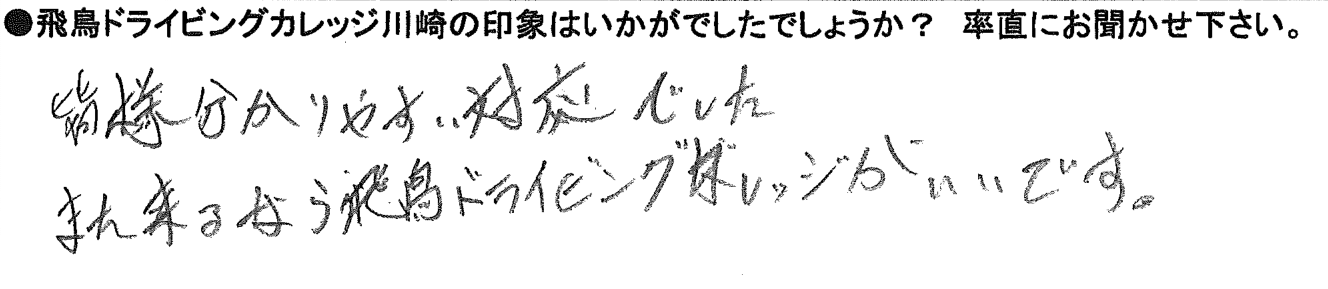 ●飛鳥ドライビングカレッジ川崎の印象はいかがでしたでしょうか? 率直にお聞かせ下さい。
皆様分かりやすい対応でした
また来るなら飛鳥ドライビングカレッジがいいです。